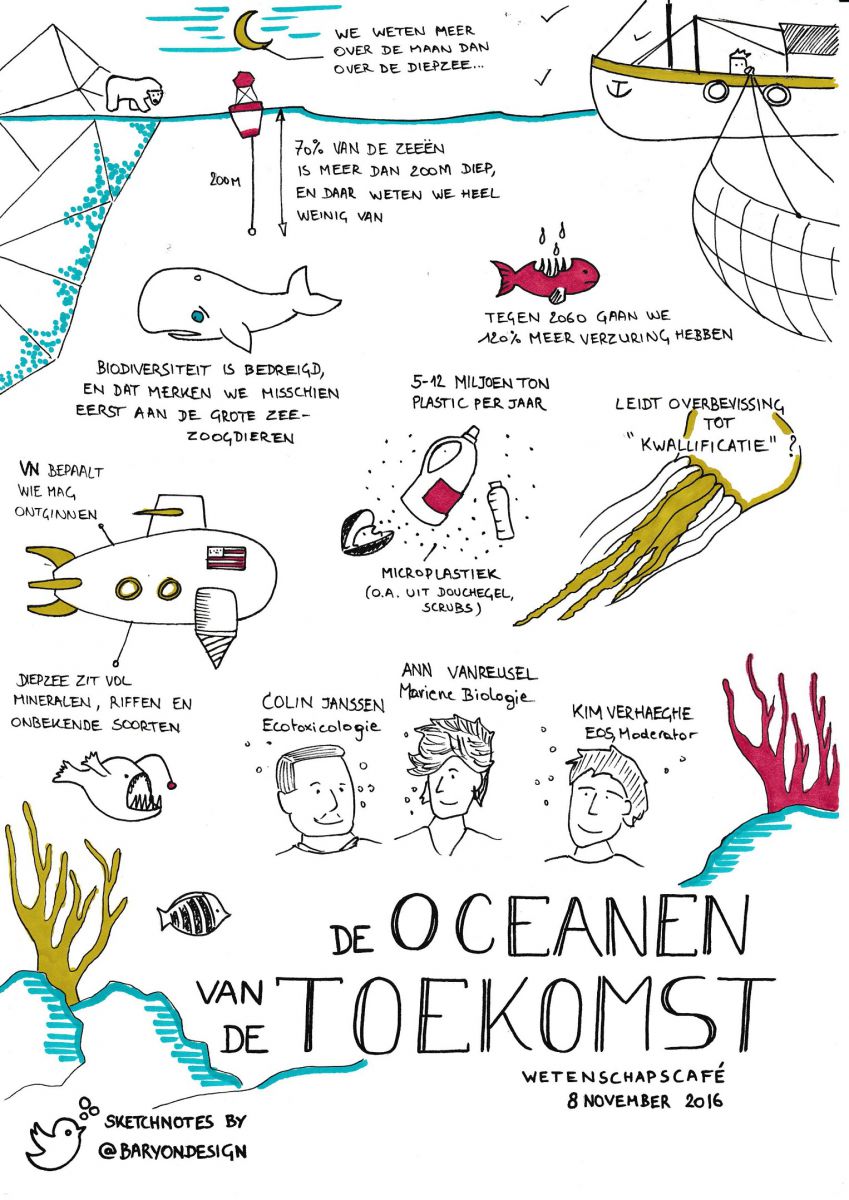 WE WETEN MEER
OVER DE MAAN DAN
OVER DE DIEPZEE...
200M
70% VAN DE ZEEËN
IS MEER DAN 200M DIEP,
EN DAAR WETEN WE HEEL
WEINIG VAN
TEGEN 2060 GAAN WE
120% MEER VERZURING HEBBEN
BIODIVERSITEIT IS BEDREIGD,
EN DAT MERKEN WE MISSCHIEN
EERST AAN DE GROTE ZEE-
ZOOGDIEREN
5-12 MILJOEN TON
PLASTIC PER JAAR
LEIDT OVERBEVISSING
TOT
"KWALLIFICATIE"?
VN BEPAALT
WIE MAG
ONTGINNEN
MICROPLASTIEK
(O.A. UIT DOUCHEGEL,
SCRUBS)
DIEPZEE ZIT VOL
MINERALEN, RIFFEN EN
ONBEKENDE SOORTEN
COLIN JANSSEN
Ecotoxicologie
ANN VANREUSEL
Mariene Biologie
KIM VERHAEGHE
EOS, Moderator
DE OCEANEN
VAN
DE TOEKOMST
WETENSCHAPSCAFÉ
8 NOVEMBER 2016
SKETCHNOTES BY
@BARYONDESIGN